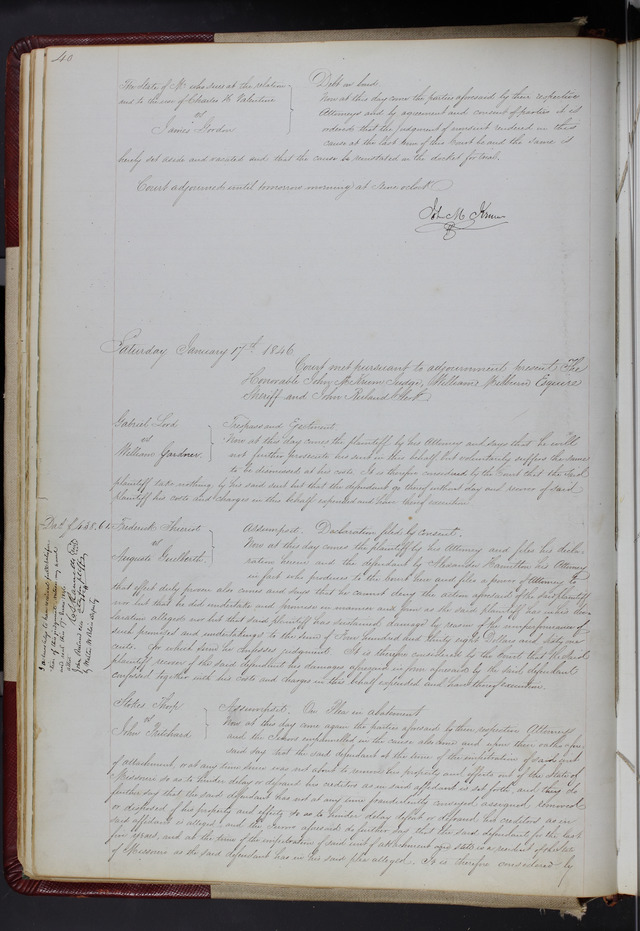 40
The State of Mo. who sues at the relation
and to the use of Charles B Valentine
vs
James Gordon
Debt on bond
Now at this day come the parties aforesaid by their respective
Attorneys and by agreement and consent of parties it is
ordered that the judgment of nonsuit rendered in this
cause at the last term of this Court be and the same is
hereby set aside and vacated and that the cause be reinstated on the docket for trial.
Court adjourned until tomorrow morning at nine oclock
Jno M Krum
Saturday January 17th 1846
Court met pursuant to adjournment present The
Honorable John M Krum Judge, William Milburn Esquire
Sheriff and John Ruland Clerk
Gabriel Lord
vs
William Gardner.
Trespass and Ejectment.
Now at this day comes the plaintiff by his Attorney and says that he will
not further prosecute his suit in this behalf but voluntarily suffers the same
to be dismissed at his costs. It is therefore considered by the Court that the said
plaintiff take nothing by his said suit but that the defendant go thereof without day and recover of said
plaintiff his costs and charges in this behalf expended and have thereof execution
Frederick
vs
Auguste
Assumpsit. Declaration filed by consent.
Now at this day comes the plaintiff by his Attorney and files his decla-
ration herein and the defendant by Alexander Hamilton his Attorney
in fact who produces to the Court here and files a power of Attorney to
that effect duly proven also comes and says that he cannot deny the action aforesaid of the said plaintiff
nor but that he did undertake and promise in manner and form as the said plaintiff has in his dec-
laration alleged nor but that said plaintiff has sustained damage by reason of the non performance of
such promises and undertakings to the sum of Four hundred and thirty eight Dollars and sixty one
cents. for which sum he confesses judgment. It is therefore considered by the Court that the said
plaintiff recover of the said defendant his damages aforesaid in form aforesaid by the said defendant
confessed together with his costs and charges in this behalf expended and have thereof execution.
Stokes
vs
John Pritchard
Assumpsit. On Plea in abatement
Now at this day come again the parties aforesaid by their respective Attorneys
and the Jurors empannelled in the cause also come and upon their oaths afore-
said say that the said defendant at the time of the suing out of said writ
of attachment, or at any time since was not about to remove his property and effects out of the State of
Missouri so as to hinder delay or defraud his creditors as in said affidavit is set forth, and they do
further say that the said defendant has not at any time fraudulently conveyed assigned, removed
or disposed of his property and effects so as to hinder delay or defraud his creditors as in
said affidavit is alleged, and the Jurors aforesaid do further say that the said defendant for the last
five years, and at the time of the said writ of attachment was a resident of the State
of Missouri as the said defendant has in his said plea alleged. It is therefore considered by